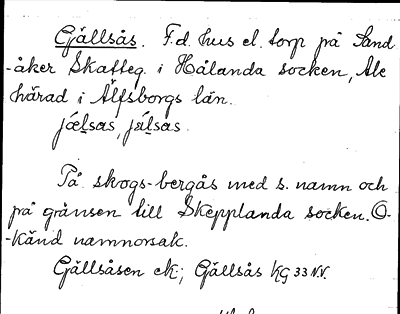 Gällsås. F.d. hus el. torp på Sand
-åker Skatteg. i Hålanda socken, Ale
härad i Älfsborgs län.
jǽlsas, jälsas.
På skogs-bergås med s. namn och
på gränsen till Skepplanda socken. O-
-känd namnorsak.
Gällsåsen ek.; Gällsås KG 33 NV.